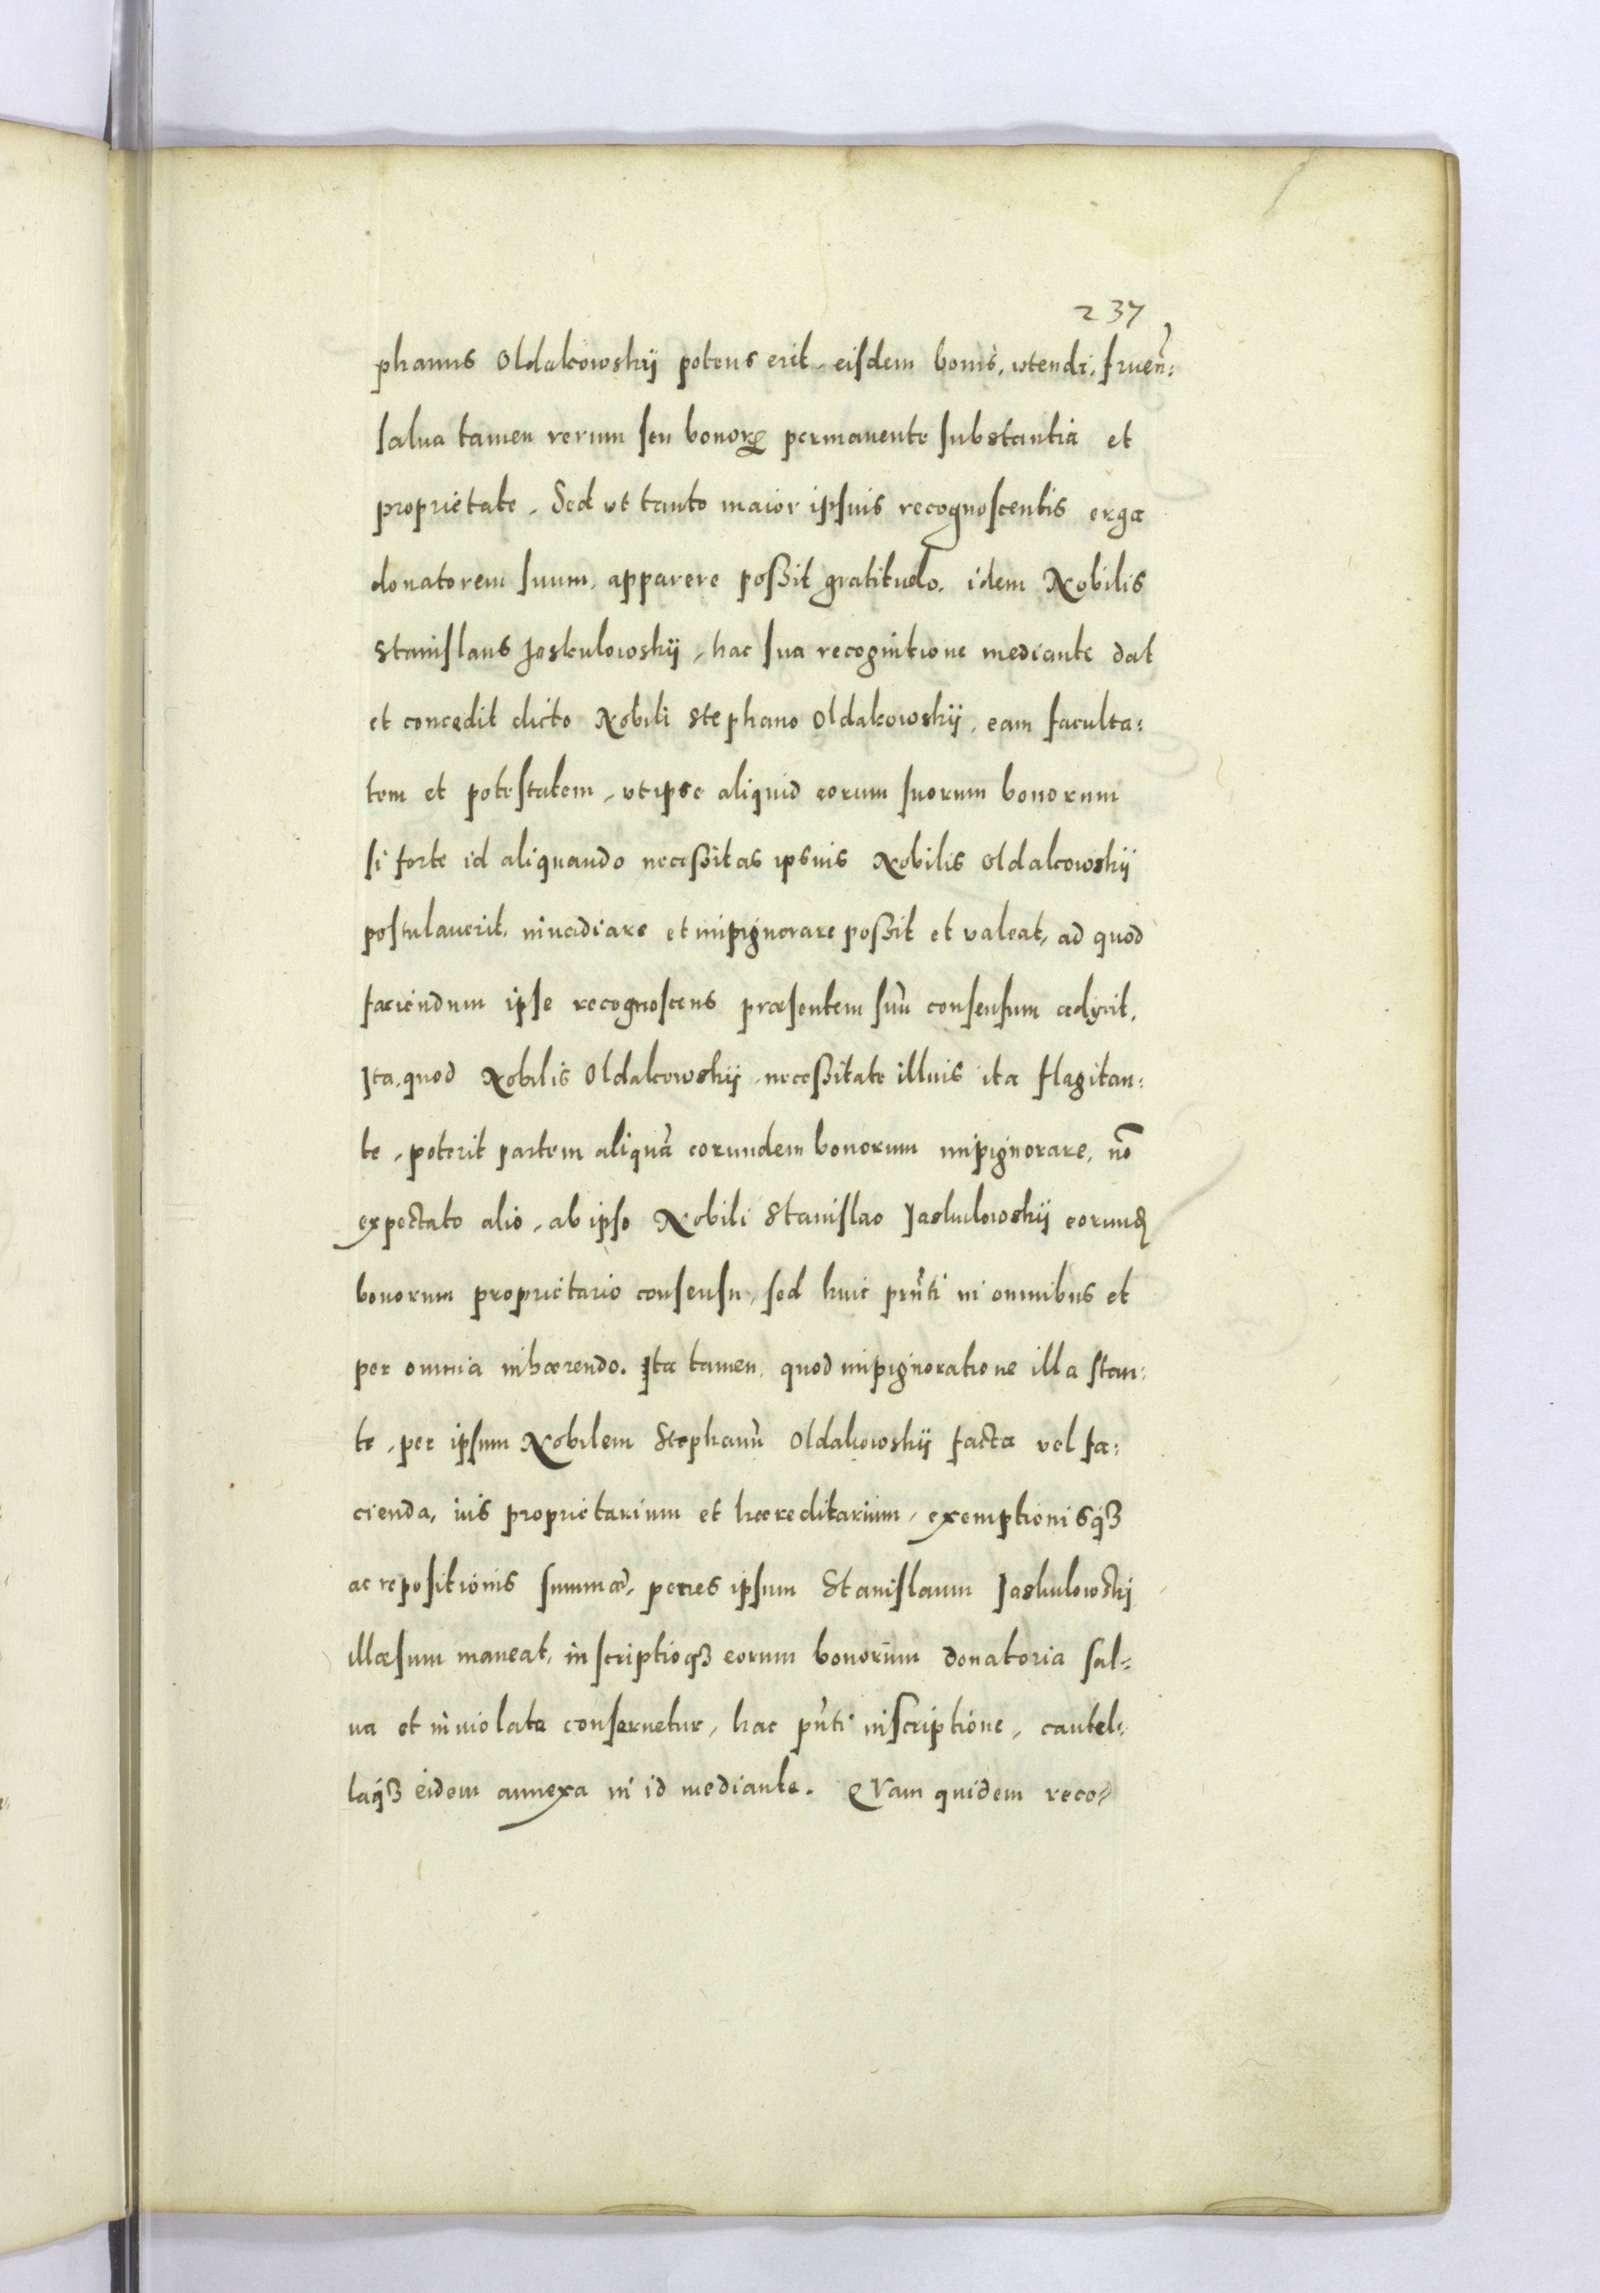 237
phanus Oldakowskij potens erit, eisdem bonis, utendi, fruen̄:
salua tamen rerum seu bonorꝝ permanente substantia et
proprietate. Sed ut tanto maior ipsius recognoscentis erga
donatorem suum, apparere poßit gratitudo, idem Nobilis
Stanislaus Jaskulowskij, hac sua recognitione mediante dat
et concedit dicto Nobili Stephano Oldakowskij, eam faculta:
tem et potestatem, ut ipse aliquid eorum suorum bonorum
si forte id aliquando neceßitas ipsius Nobilis Oldakowskij
postulauerit, inuadiare et impignorare poßit et valeat, ad quod
faciendum ipse recognoscens præsentem suū consensum adijcit,
Ita, quod Nobilis Oldakowskij, neceßitate illius ita flagitan:
te, poterit partem aliquā eorundem bonorum impignorare, nō
expectato alio, ab ipso Nobili Stanislao Jaskulowskij eorunđ
bonorum proprietario consensu, sed huic pn̄ti in omnibus et
per omnia inhærendo. Ita tamen, quod impignoratione illa stan:
te, per ipsum Nobilem Stephanū Oldakowskij facta vel fa:
cienda, ius proprietarium et hæreditarium, exemptionisqꝫ
ac repositionis summæ, penes ipsum Stanislaum Jaskulowskj
illæsum maneat, inscriptioqꝫ eorum bonorum donatoria sal:
ua et inuiolata conseruetur, hac pn̄ti inscriptione, cautel:
laqꝫ eidem annexa in id mediante. QVam quidem reco: